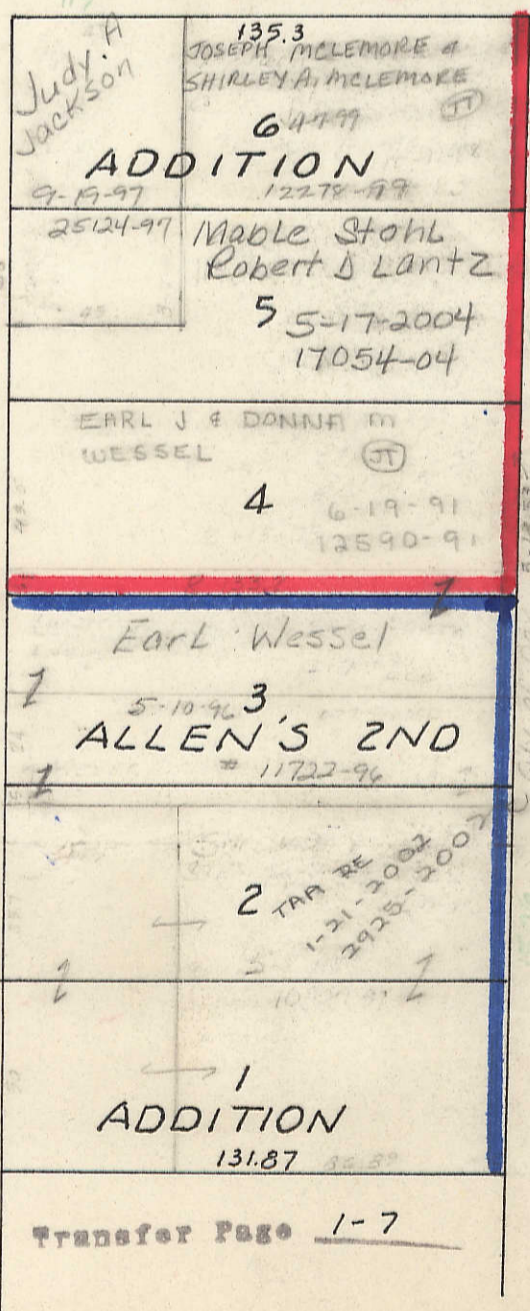 135.3
Judy. A
Jackson
JOSEPH MCLEMORE &
SHIRLEY A. MCLEMORE
JT
6 4-7-99
ADDITION
9-19-97
12278-99
25124-97
Mable Stohl
Robert D Lantz
5 5-17-2004
17054-04
EARL J & DONNA M
WESSEL
JT
4
6-19-91
12590-91
1
Earl Wessel
1
5-10-96 3
ALLEN'S 2ND
# 11722-96
1
2
TAA RE
1-21-2002
2925-2002
1
1
1
ADDITION
131.87
Transfer Page 1-7